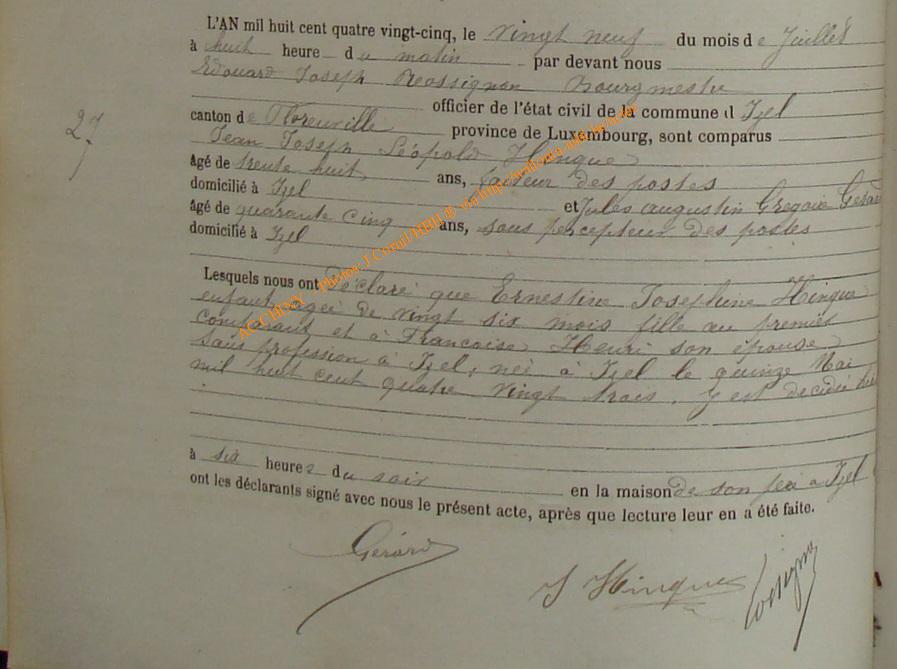 L'AN mil huit cent quatre vingt-cinq, le vingt neuf du mois de Juillet
à huit heure du matin par devant nous
Edouard Joseph Rossignon Bourgmestre
officier de l'état civil de la commune d Izel
27
canton de Florenville province de Luxembourg, sont comparus
Jean Joseph Léopold Hinque
âgé de trente huit ans, facteur des postes
domicilié à Izel et Jules augustin Gregoire Gerard
âgé de quarante cinq ans, sous percepteur des postes
domicilié à Izel
Lesquels nous ont Déclaré que Ernestine Josephine Hinque
enfant agée de vingt six mois fille au premier
comparant et à Francoise Henri son épouse
sans profession à Izel, née à Izel le quinze Mai
mil huit cent quatre vingt trois. y est decidée hier
à six heures du soir en la maison de son père a Izel
ont les déclarants signé avec nous le présent acte, après que lecture leur en a été faite.
Gérard
J Hinque
ACCHINX - Photos J.Cornil HBH ®